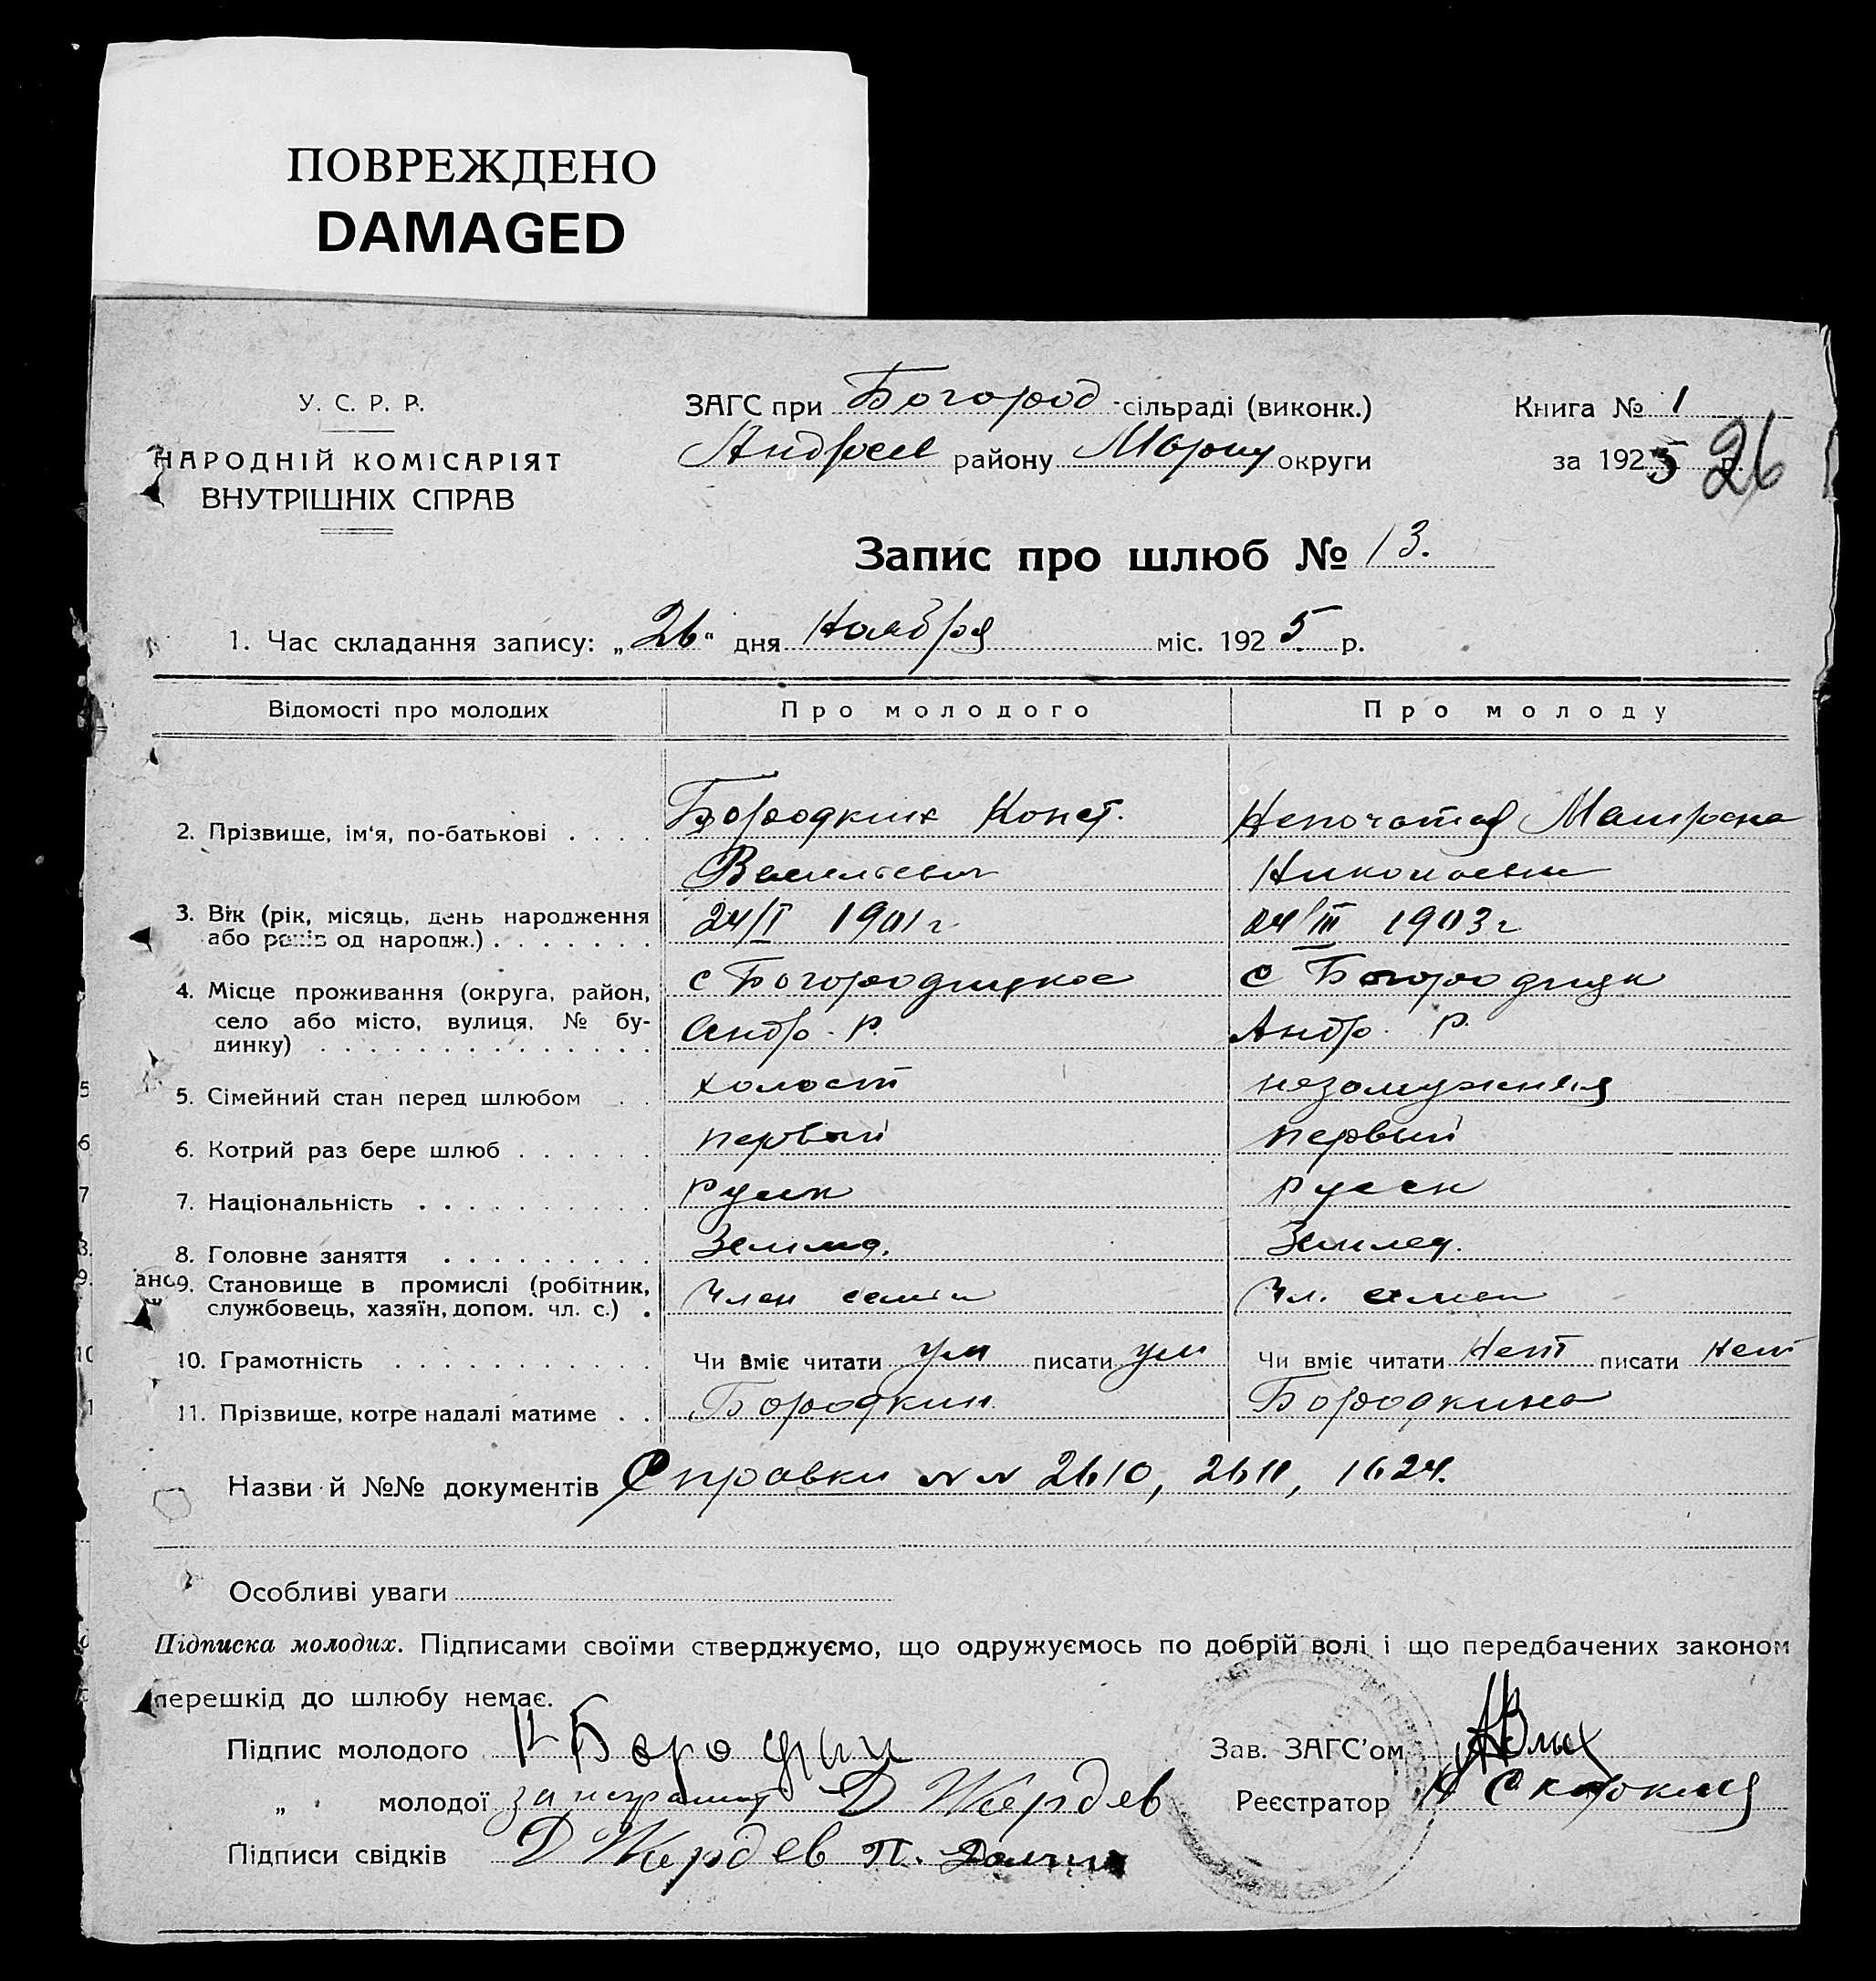 ПОВРЕЖДЕНО
DAMAGED
У. С. Р. Р.
НАРОДНІЙ КОМІСАРІЯТ
ВНУТРІШНІХ СПРАВ
ЗАГС при Богород -сільраді (виконк.)
Андреев району Мариу округи
Книга № 1
за 1925 р.
26
Запис про шлюб № 13.
1. Час складання запису: „26" дня Ноября міс. 1925 р.
Відомості про молодих Про молодого Про молоду
2. Прізвище, ім'я, по-батькові . . . . Бородкин Конст. Непочатая Матрена
Васильевич Николаевна
3. Вік (рік, місяць, день народження 24/I 1901 г 24/III 1903 г
або років од народж.) . . . . . . .
4. Місце проживання (округа, район, с Богородицкое с Богородицк
село або місто, вулиця, № бу- Андр. Р. Андр. Р.
динку) . . . . . . . . . . . . . .
5. Сімейний стан перед шлюбом . . холост незамужняя
6. Котрий раз бере шлюб . . . . . . первый первый
7. Національність . . . . . . . . . . русск русск
8. Головне заняття . . . . . . . . . Землед. Землед.
9. Становище в промислі (робітник, Член семьи Чл. семьи
службовець, хазяїн, допом. чл. с.) .
10. Грамотність . . . . . . . . . . . Чи вміє читати ум писати ум Чи вміє читати Нет писати нет
11. Прізвище, котре надалі матиме . . Бородкин Бородкина
Назви й №№ документів Справки NN 2610, 2611, 1624.
Особливі уваги
Підписка молодих. Підписами своїми стверджуємо, що одружуємось по добрій волі і що передбачених законом
перешкід до шлюбу немає.
Підпис молодого К Бородкин Зав. ЗАГС'ом
„ молодої за неграмот Д Жердев Реєстратор
Підписи свідків Д Жердев П.